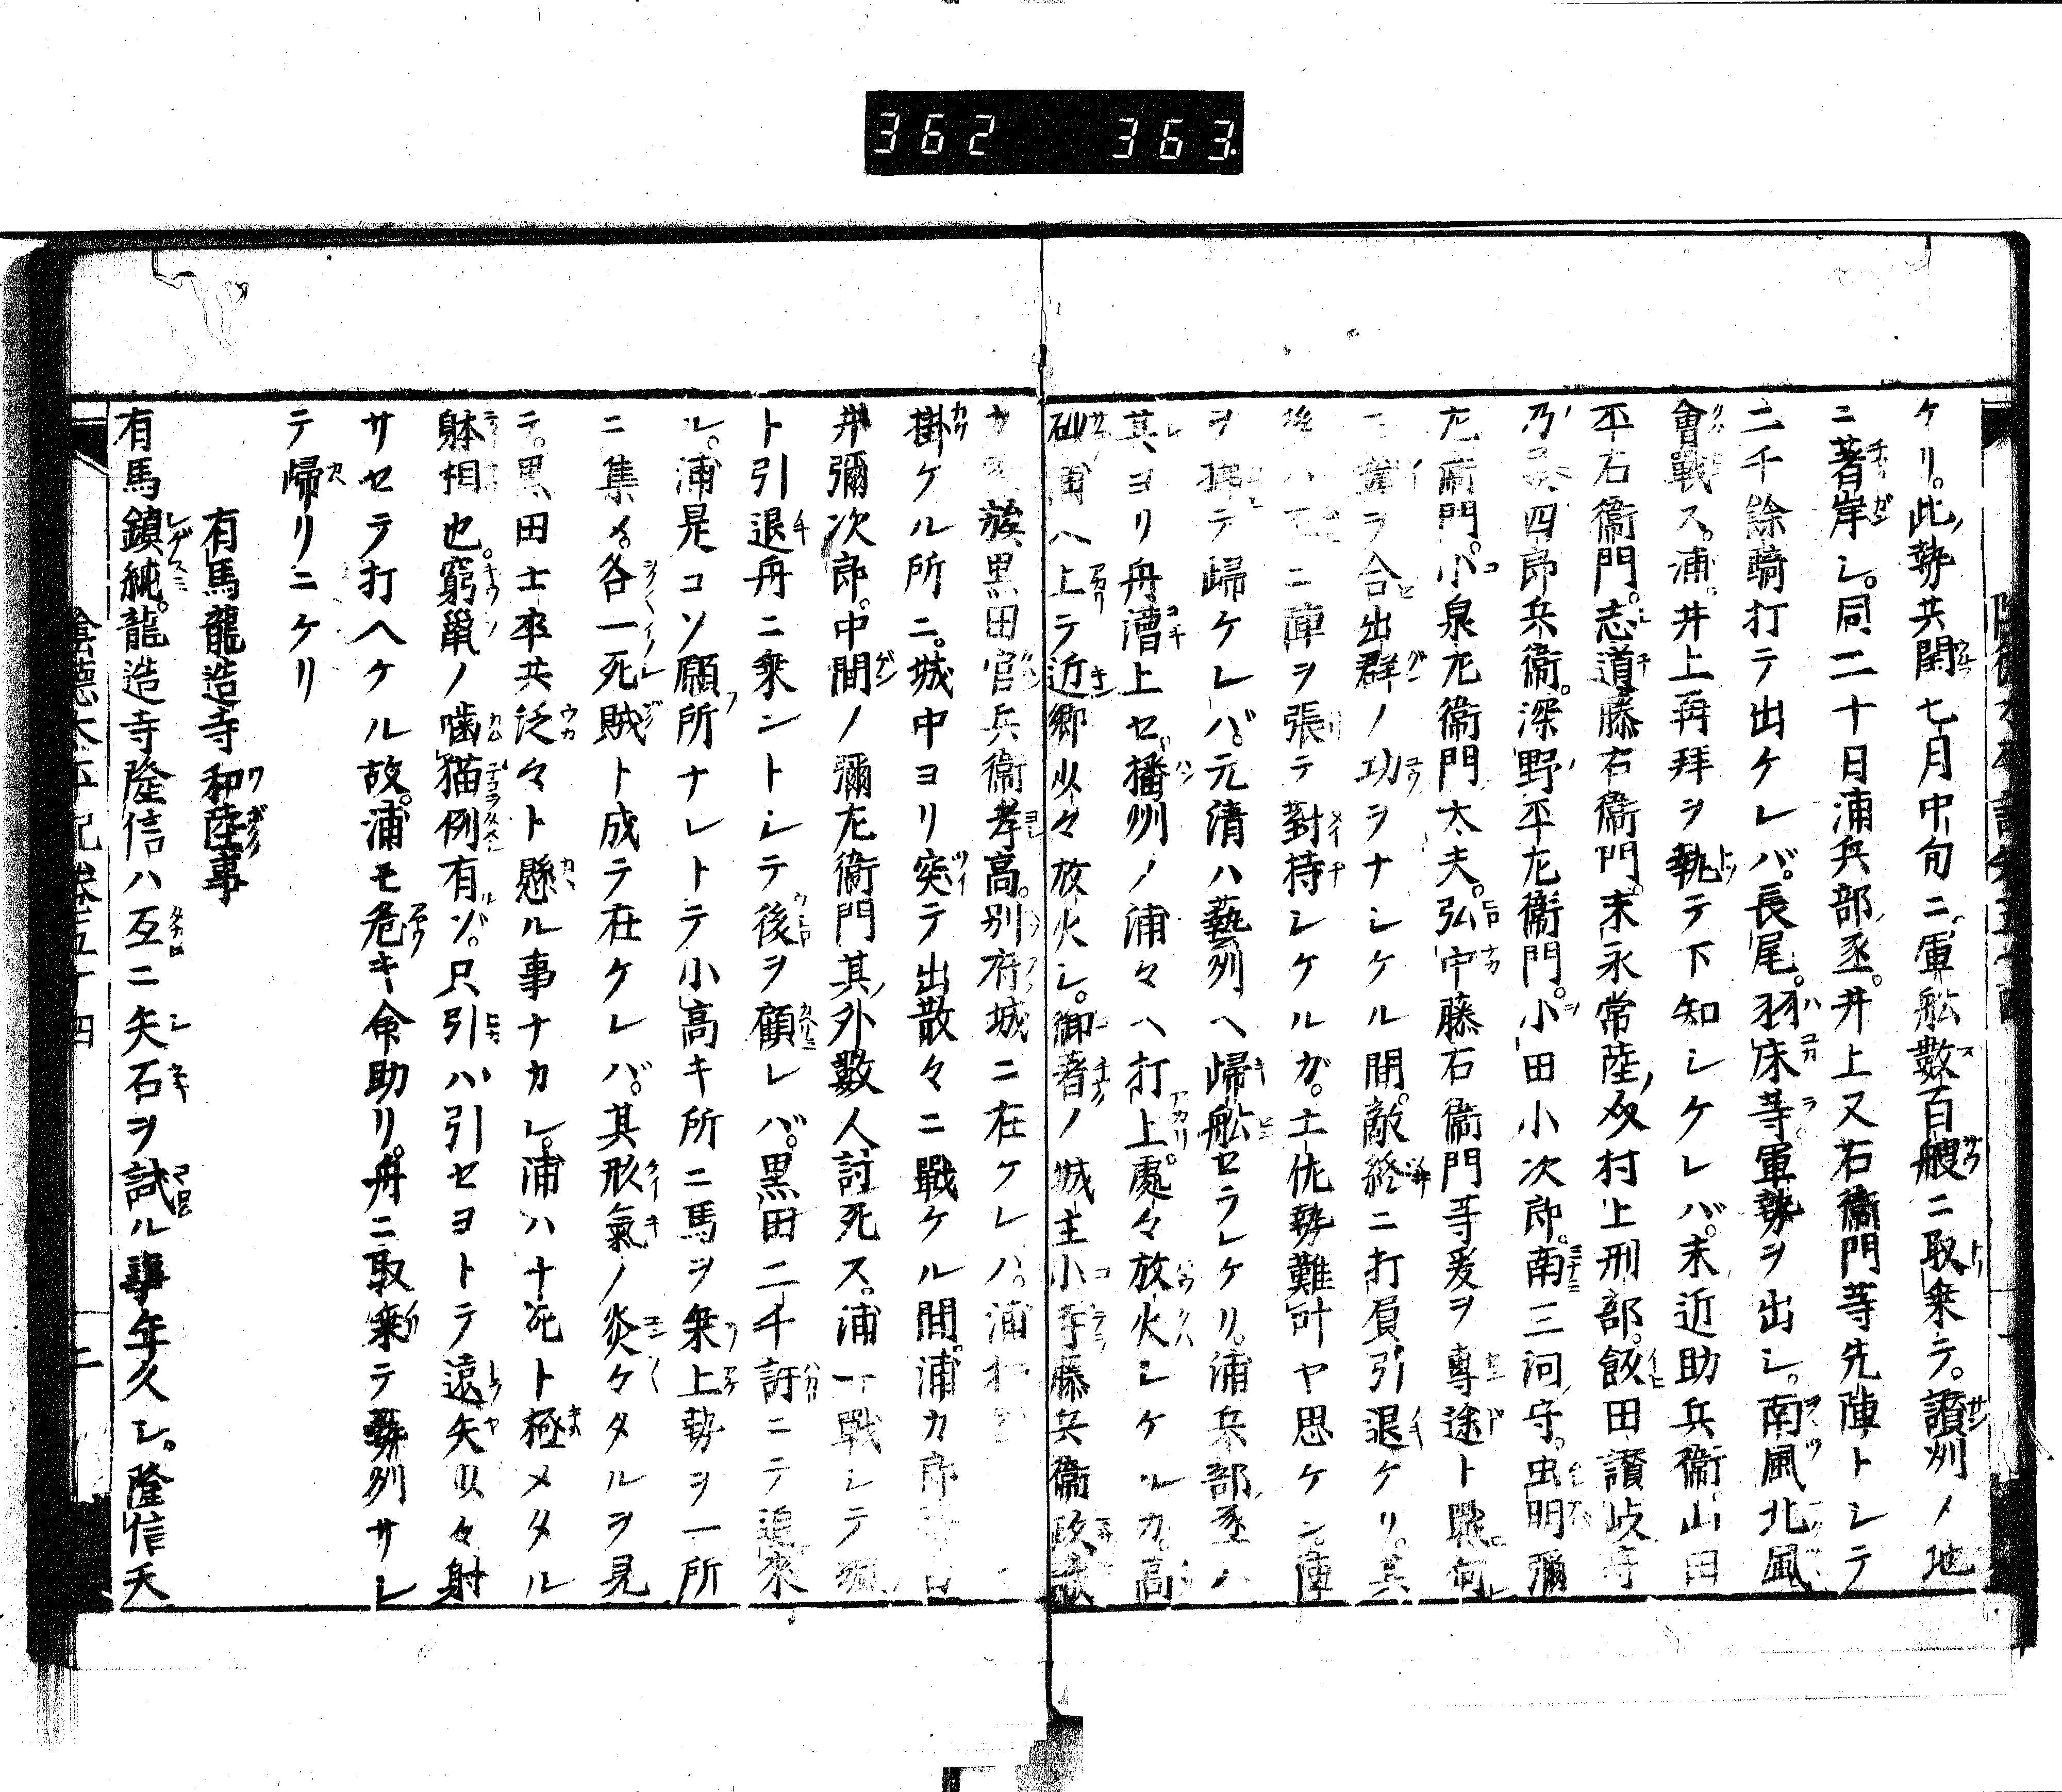 362 363
ケリ。此勢共閏七月中旬ニ。軍舩數百艘ニ取乗テ。讃州ノ地
ニ著岸シ。同二十日浦兵部丞。井上又右衞門等先陣トシテ
二千餘騎打テ出ケレバ。長尾。羽床等軍勢ヲ出シ。南風北風
會戰ス。浦。井上再拜ヲ執テ下知シケレバ。末近助兵衞。山田
平右衞門。志道藤右衞門。末永常陸 村上刑部。飯田讃岐守
乃 四郎兵衞。深野平左衞門。小田小次郎。南三河守。虫明彌
左衞門。小泉左衞門太夫。弘中藤右衞門等爰ヲ專途ト戰
合出群ノ功ヲナシケル間。敵終ニ打負引退ケリ。其
後ハ ニ陣ヲ張テ對持シケルガ。土佐勢難叶ヤ思ケン。陣
ヲ テ歸ケレバ。元清ハ藝列ヘ歸舩セラレケリ。浦兵部丞ハ
其ヨリ舟漕上セ。播州ノ浦々ヘ打上。處々放火シケルカ。高
砂浦ヘ上テ近郷少々放火シ。御著ノ城主小寺藤兵衞政
カ 族黒田官兵衞孝高。別府城ニ在ケレハ。浦
掛ケル所ニ。城中ヨリ突テ出散々ニ戰ケル間。浦カ郎
井彌次郎。中間ノ彌左衞門其外數人討死ス。浦一戰シテ
ト引退舟ニ乗ントシテ後ヲ顧レバ。黒田二千訝ニテ追來
ル。浦是コソ願所ナレトテ小高キ所ニ馬ヲ乗上勢ヲ一所
ニ集メ。各一死賊ト成テ在ケレバ。其形氣ノ炎々タルヲ見
テ。黒田士卒共泛々ト懸ル事ナカレ。浦ハ十死ト極メタル
躰相也。窮鼠ノ噛猫例有ゾ。只引ハ引セヨトテ遠矢少々射
サセテ打ヘケル故。浦モ危キ命助リ。舟ニ取乗テ藝列サレ
テ歸リニケリ
有馬龍造寺和陸事
有馬鎮純。龍造寺隆信ハ互ニ矢石ヲ試ル事年久シ。隆信天
陰德太平記卷五十四 二